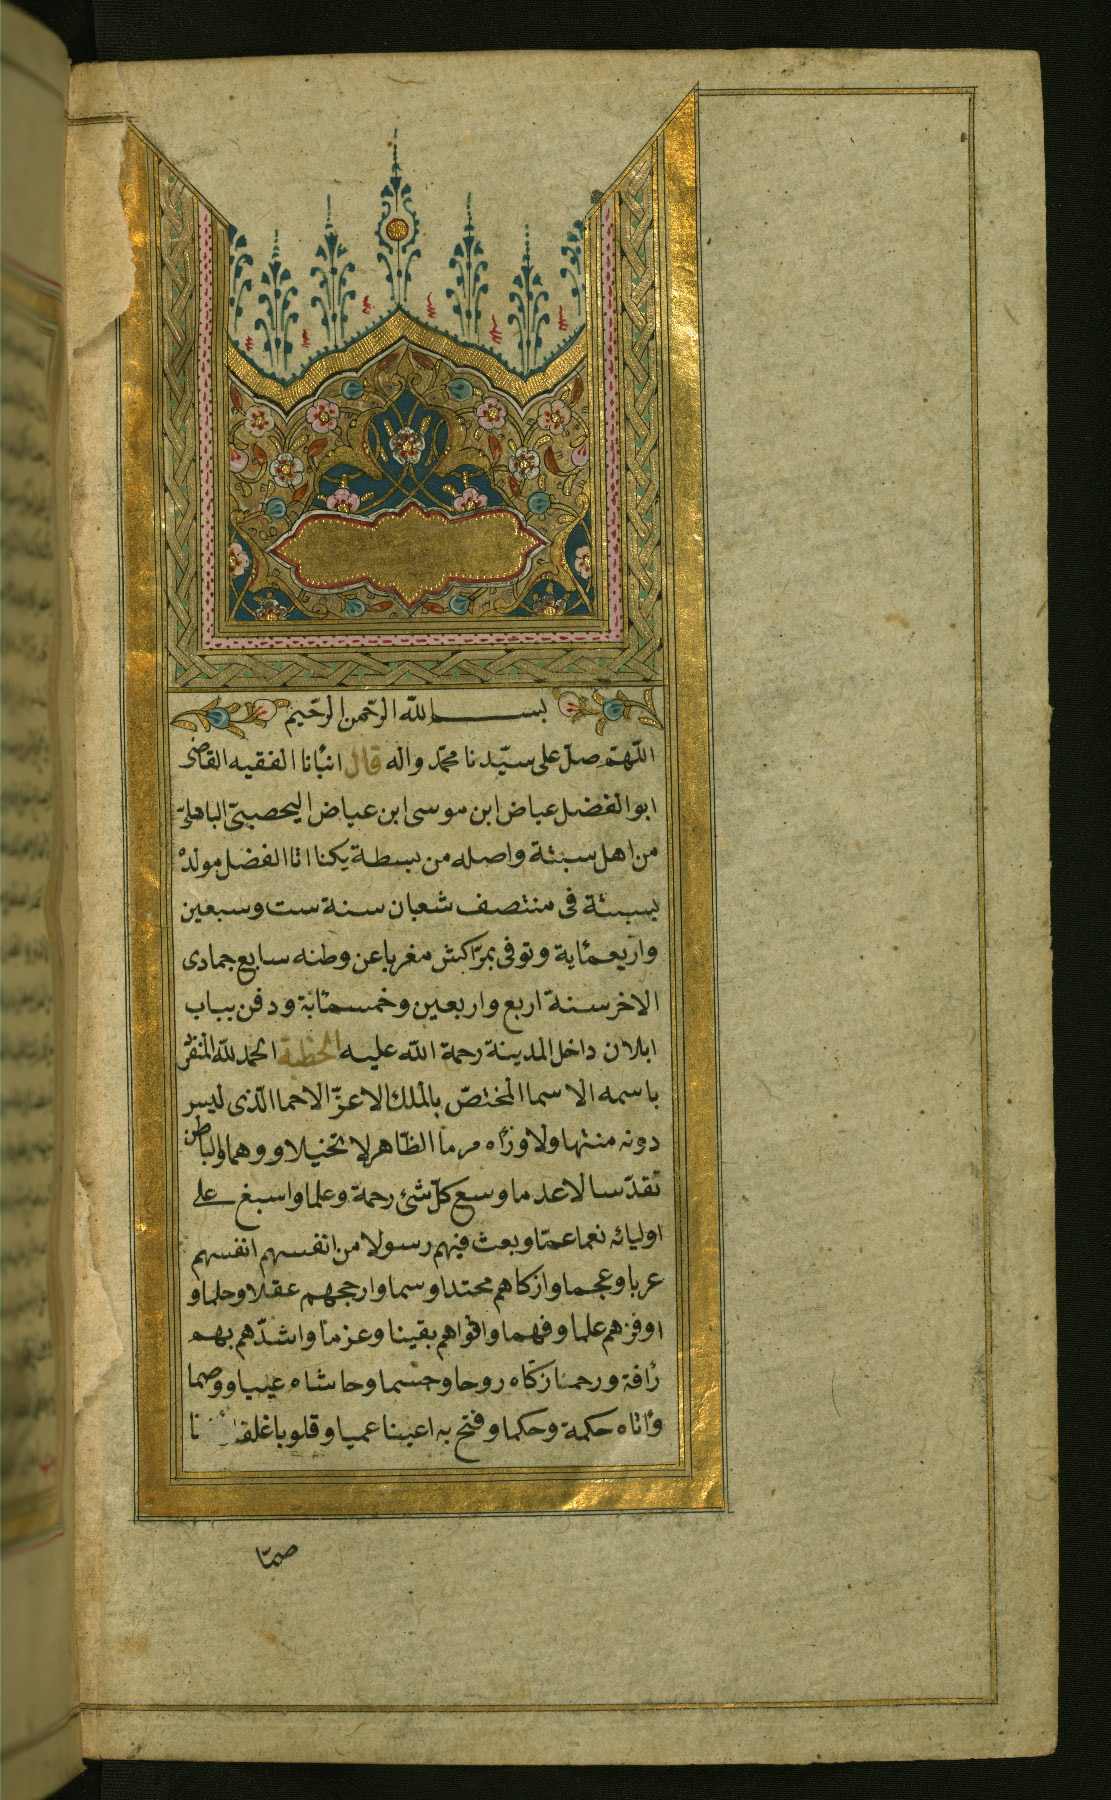 بســـــم الله الرّحمن الرّحيم
اللّهمّ صلّ على سيّدنا محمّد واله قال انبأنا الفقيه القاضى
ابو الفضل عياض ابن موسى ابن عياض اليحصبىّ الباهلىّ
من اهل سبتة واصله من بسطة يكنا ابا الفضل مولده
بسبتة فى منتصف شعبان سنة ست وسبعين
واربعمائة وتوفى بمرّاكش مغربا عن وطنه سابع جمادى
الاخر سنة اربع واربعين وخمسمائة ودفن بباب
ايلان داخل المدينة رحمة الله عليه الخطبة الحمد لله المنفرد
باسمه الاسما المختصّ بالملك الاعزّ الاحما الّذى ليس
دونه منتها ولا وراه مرما الظّاهر لا تخيلا ووهما والباطن
تقدّسا لا عدما وسع كلّ شئ رحمة وعلما واسبغ على
اوليائه نعما عمّا وبعث فيهم رسولا من انفسهم انفسهم
عربا وعجما وازكاهم محتدا وسما وارجحهم عقلا وحلما و
اوفرهم علما وفهما واقواهم يقينا وعزما واشدّهم بهم
رأفة ورحما زكّاه روحا وجسما وحاشاه عيبا ووصما
وأتاه حكمة وحكما وفتح به اعينا عميا وقلوبا غلفا نا
صمّا